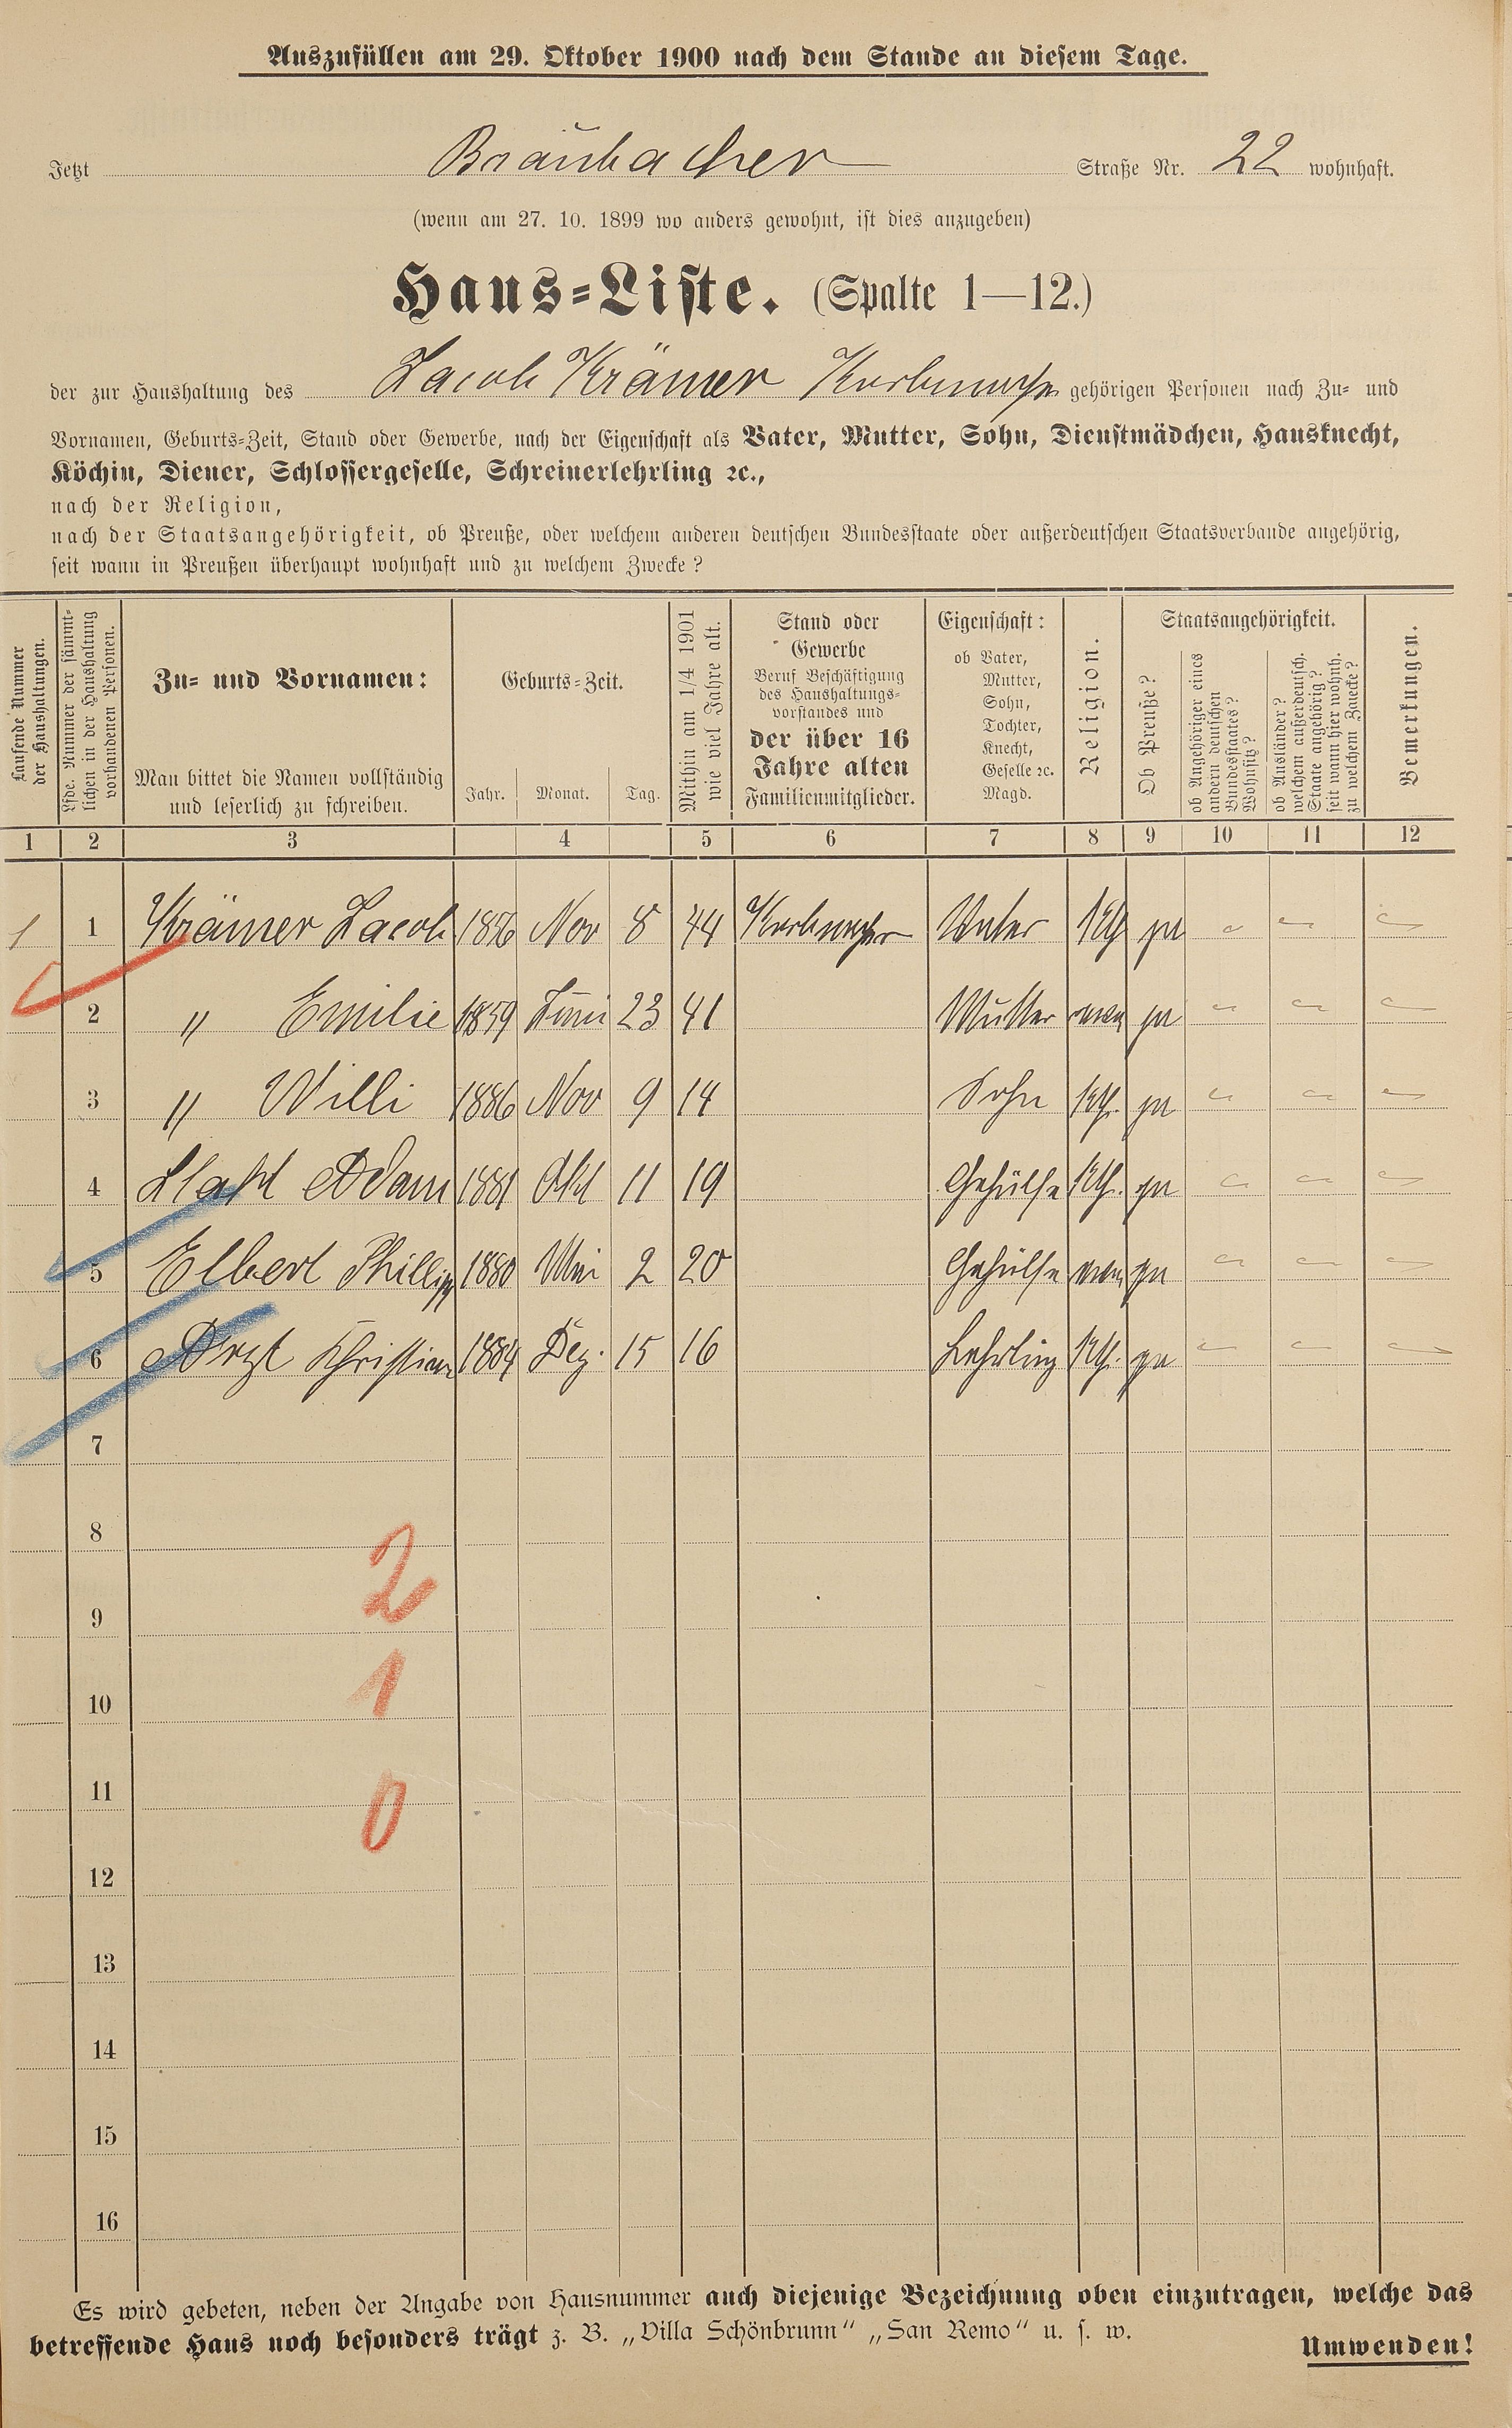 Auszufüllen am 29. Oktober 1900 nach dem Stande an diesem Tage.
Jetzt Braubacher Straße Nr. 22 wohnhaft.
(wenn am 27. 10. 1899 wo anders gewohnt, ist dies anzugeben)
Haus-Liste. (Spalte 1—12.)
der zur Haushaltung des Jacob Krämer Korbmacher gehörigen Personen nach Zu- und
Vornamen, Geburts-Zeit, Stand oder Gewerbe, nach der Eigenschaft als Vater, Mutter, Sohn, Dienstmädchen, Hausknecht,
Köchin, Diener, Schlossergeselle, Schreinerlehrling ꝛc.,
nach der Religion,
nach der Staatsangehörigkeit, ob Preuße, oder welchem anderen deutschen Bundesstaate oder außerdeutschen Staatsverbande angehörig,
seit wann in Preußen überhaupt wohnhaft und zu welchem Zwecke?
Laufende Nummer
der Haushaltungen.
Lfde. Nummer der sämmt-
lichen in der Haushaltung
vorhandenen Personen.
Zu- und Vornamen:
Man bittet die Namen vollständig
und leserlich zu schreiben.
Geburts-Zeit.
Jahr. Monat. Tag.
Mithin am 1/4 1901
wie viel Jahre alt.
Stand oder
Gewerbe
Beruf Beschäftigung
des Haushaltungs-
vorstandes und
der über 16
Jahre alten
Familienmitglieder.
Eigenschaft:
ob Vater,
Mutter,
Sohn,
Tochter,
Knecht,
Geselle ꝛc.
Magd.
Religion.
Staatsangehörigkeit.
Ob Preuße?
ob Angehöriger eines
andern deutschen
Bundesstaates?
Wohnsitz?
ob Ausländer?
welchem außerdeutsch.
Staate angehörig?
seit wann hier wohnh.
zu welchem Zwecke?
Bemerkungen.
1 2 3 4 5 6 7 8 9 10 11 12
1 1 Krämer Jacob 1856 Nov 8 44 Korbmacher Vater kth ja
2 " Emilie 1859 Juni 23 41 Mutter evan ja
3 " Willi 1886 Nov 9 14 Sohn kth. ja
4 Adam 1881 Okt 11 19 Gehülfe kth. ja
5 Elbert Phillipp 1880 Mai 2 20 Gehülfe evan ja
6 Arzt Christian 1884 Dez. 15 16 Lehrling kth. ja
7
8
2
9
10
1
11
0
12
13
14
15
16
Es wird gebeten, neben der Angabe von Hausnummer auch diejenige Bezeichnung oben einzutragen, welche das
betreffende Haus noch besonders trägt z. B. „Villa Schönbrunn" „San Remo" u. s. w.
Umwenden!